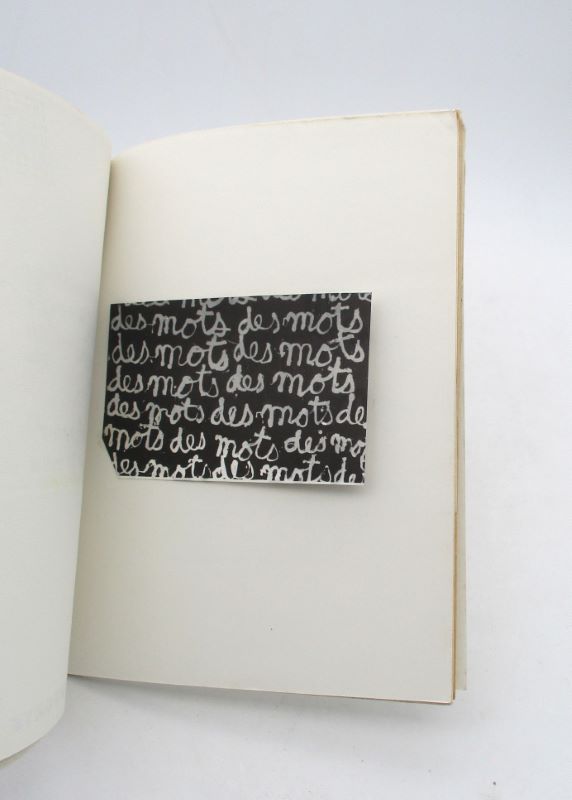 des mots des mots
des mots des mots
des mots des mots
des mots des mots
des mots des mots de
mots des mots des mo
des mots des mots de